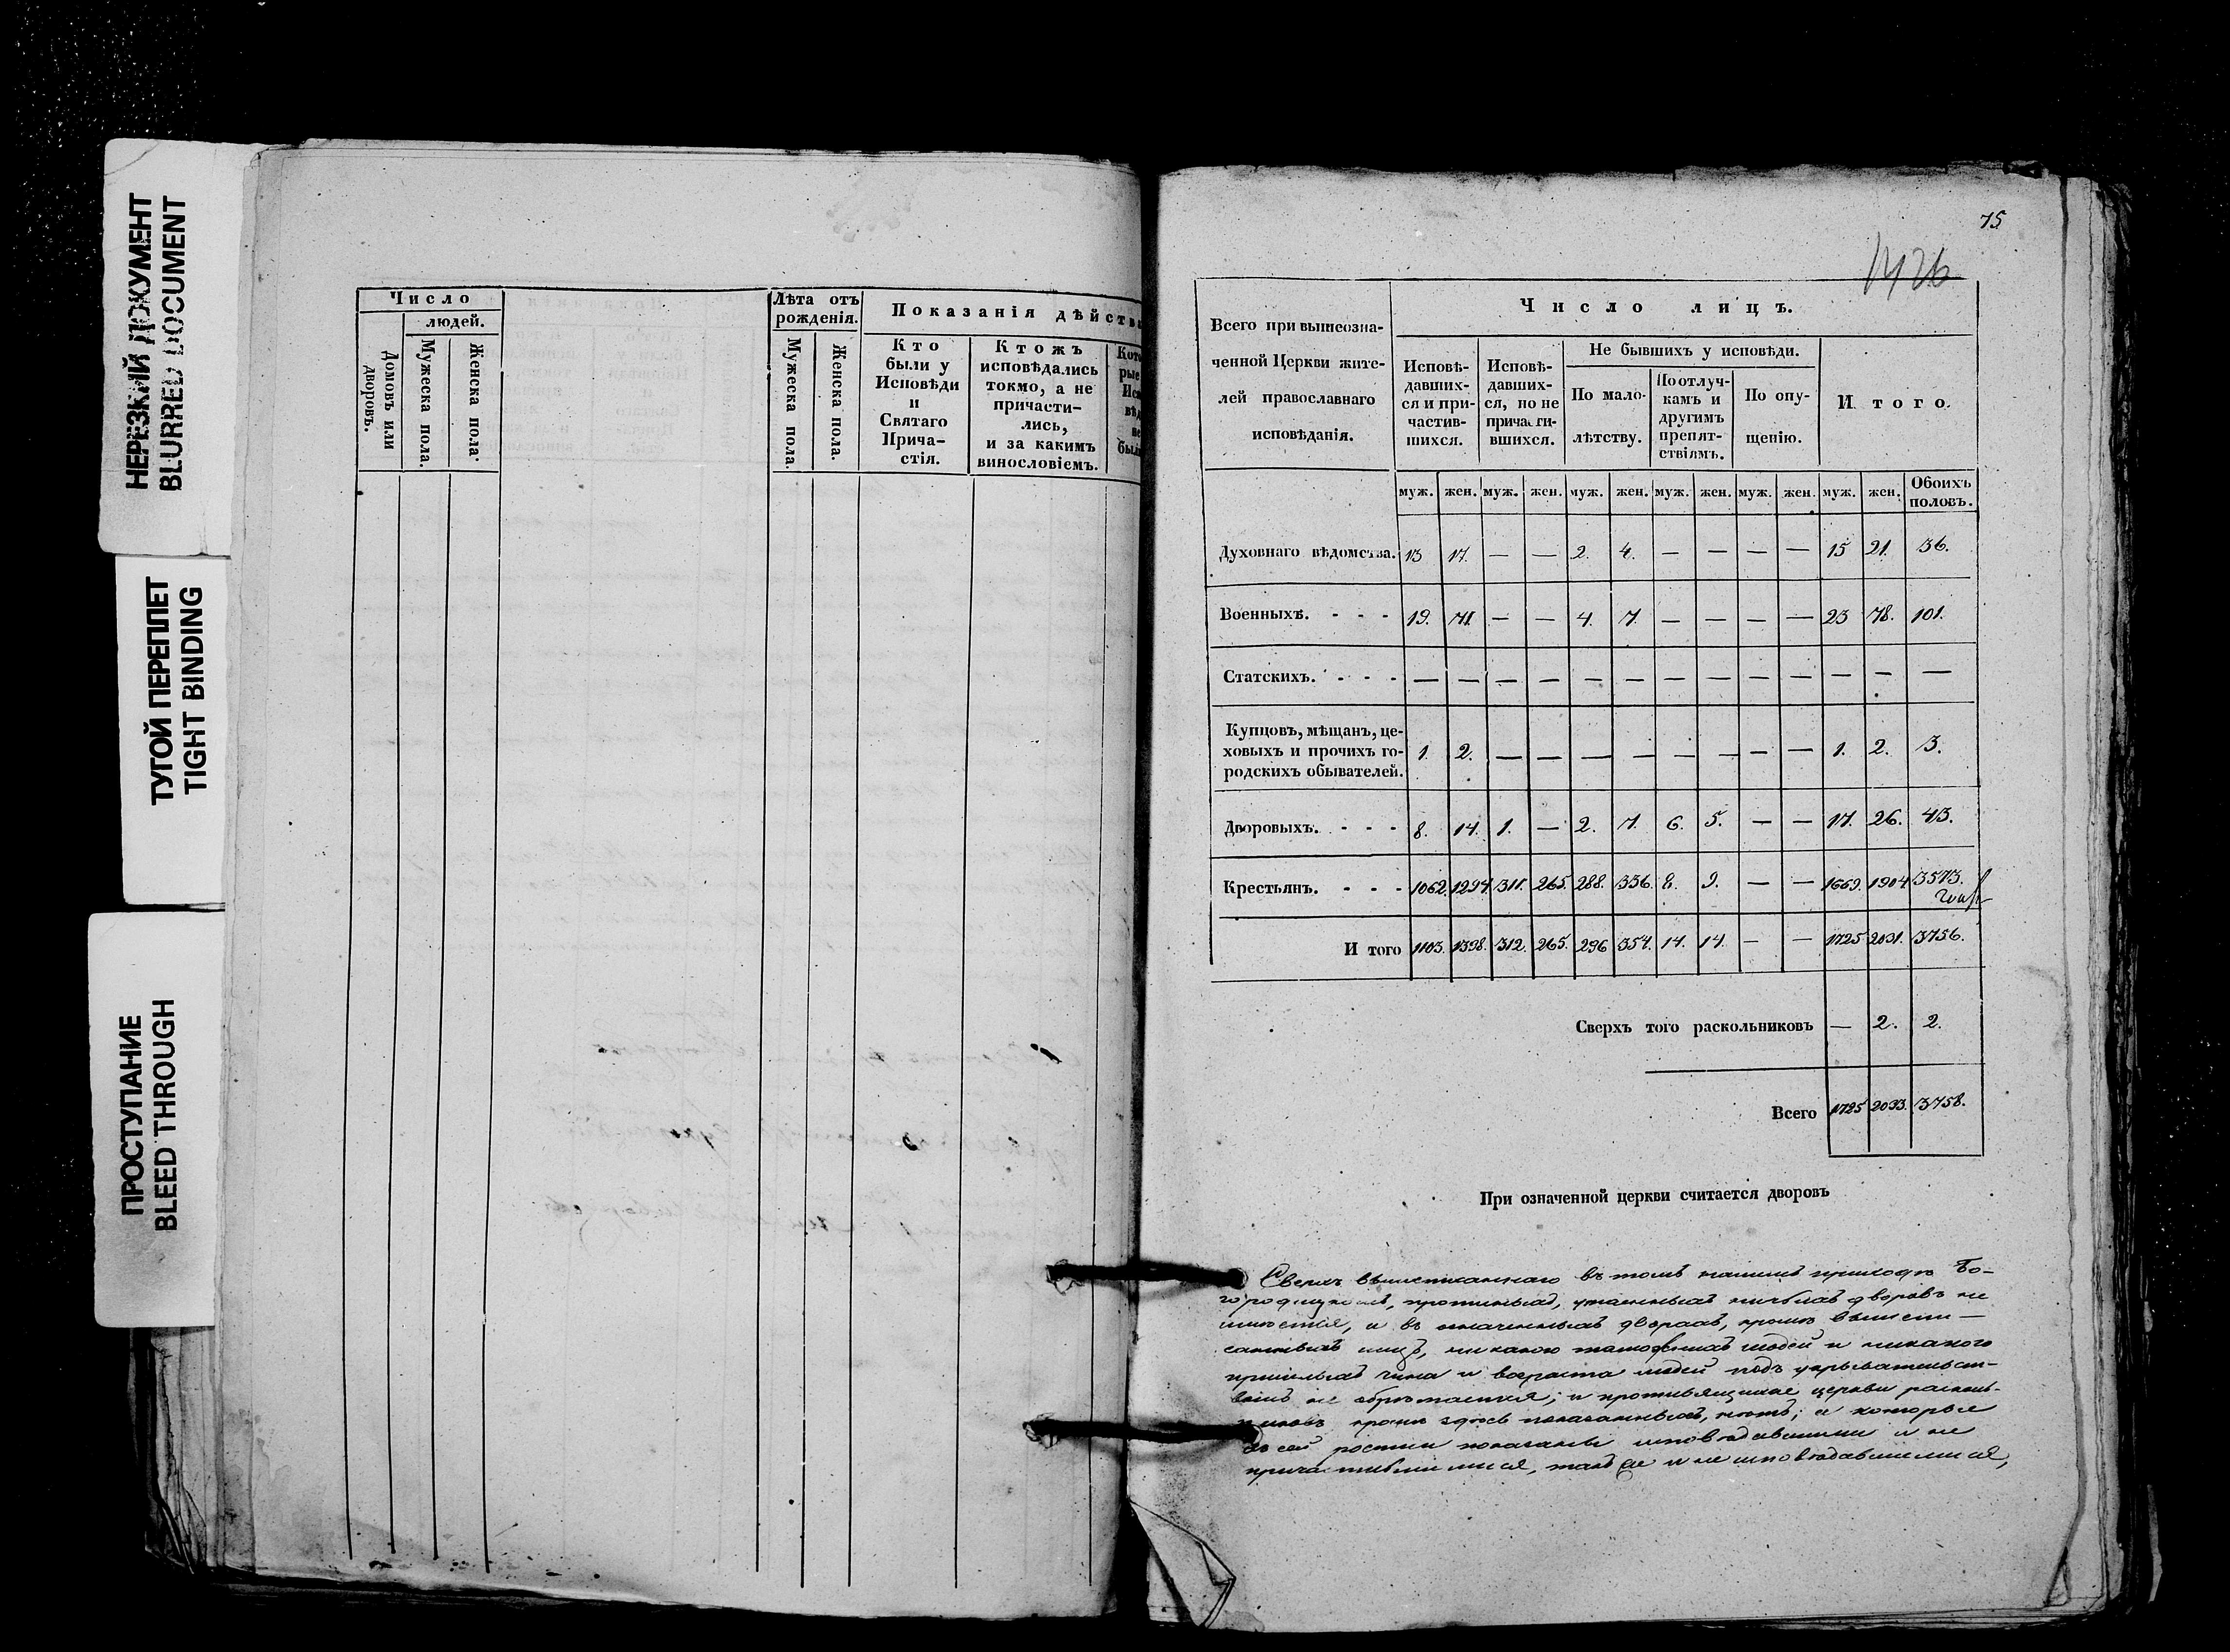 НЕРЕЗКИЙ ДОКУМЕНТ
BLURRED DOCUMENT
ТУГОЙ ПЕРЕПЛЕТ
TIGHT BINDING
ПРОСТУПАНИЕ
BLEED THROUGH
Число
людей.
Домовъ или дворовъ.
Мужеска пола.
Женска пола.
Лѣта отъ
рожденія.
Мужеска пола.
Женска пола.
Показанія дѣйств
Кто
были у
Исповѣди
и
Святаго
Прича-
стія.
Ктожъ
исповѣдались
токмо, а не
причасти-
лись,
и за какимъ
винословіемъ.
Кото
рые
Исп
вѣд
не
были
75
1426
Всего при вышеозна-
ченной Церкви жите-
лей православнаго
исповѣданія.
Число лицъ.
Исповѣ-
давших-
ся и при-
частив-
шихся.
Исповѣ-
давших-
ся, но не
причасти-
вшихся.
Не бывшихъ у исповѣди.
По мало-
лѣтству.
По отлуч-
камъ и
другимъ
препят-
ствіямъ.
По опу-
щенію.
Итого.
муж. жен. муж. жен. муж. жен. муж. жен. муж. жен. муж. жен. Обоихъ половъ.
Духовнаго вѣдомства. 13 17. — — 2. 4. — — — — 15 21. 36.
Военныхъ. - - - 19. 71. — — 4. 7. — — — — 23 78. 101.
Статскихъ. - - - — — — — — — — — — — — — —
Купцовъ, мѣщанъ, це-
ховыхъ и прочихъ го-
родскихъ обывателей. 1. 2. — — — — — — — — 1. 2. 3.
Дворовыхъ. - - - 8. 14. 1. — 2. 7. 6. 5. — — 17. 26. 43.
Крестьянъ. - - - 1062. 1294. 311. 265. 288. 336. 8. 9. — — 1669. 1904. 3573.
И того 1103. 1398. 312. 265. 296 354. 14. 14. — — 1725 2031. 3756.
Сверхъ того раскольниковъ — 2. 2.
Всего 1725 2033. 3758.
При означенной церкви считается дворовъ
Сверхъ вышеписаннаго въ томъ нашемъ приходѣ Бо-
городицкомъ, утаенныхъ дворовъ не
имѣется, и въ означенныхъ дворахъ, кромѣ вышепи-
санныхъ лицъ, людей и никакого
чина и возраста людей подъ укрывательст-
вомъ не обрѣтается; и противящихся церкви расколь-
никовъ кромѣ здѣсь показанныхъ, нѣтъ; а которые
въ сей росписи показаны исповѣдавшимися и не
причастившимися, также и не исповѣдавшимися,